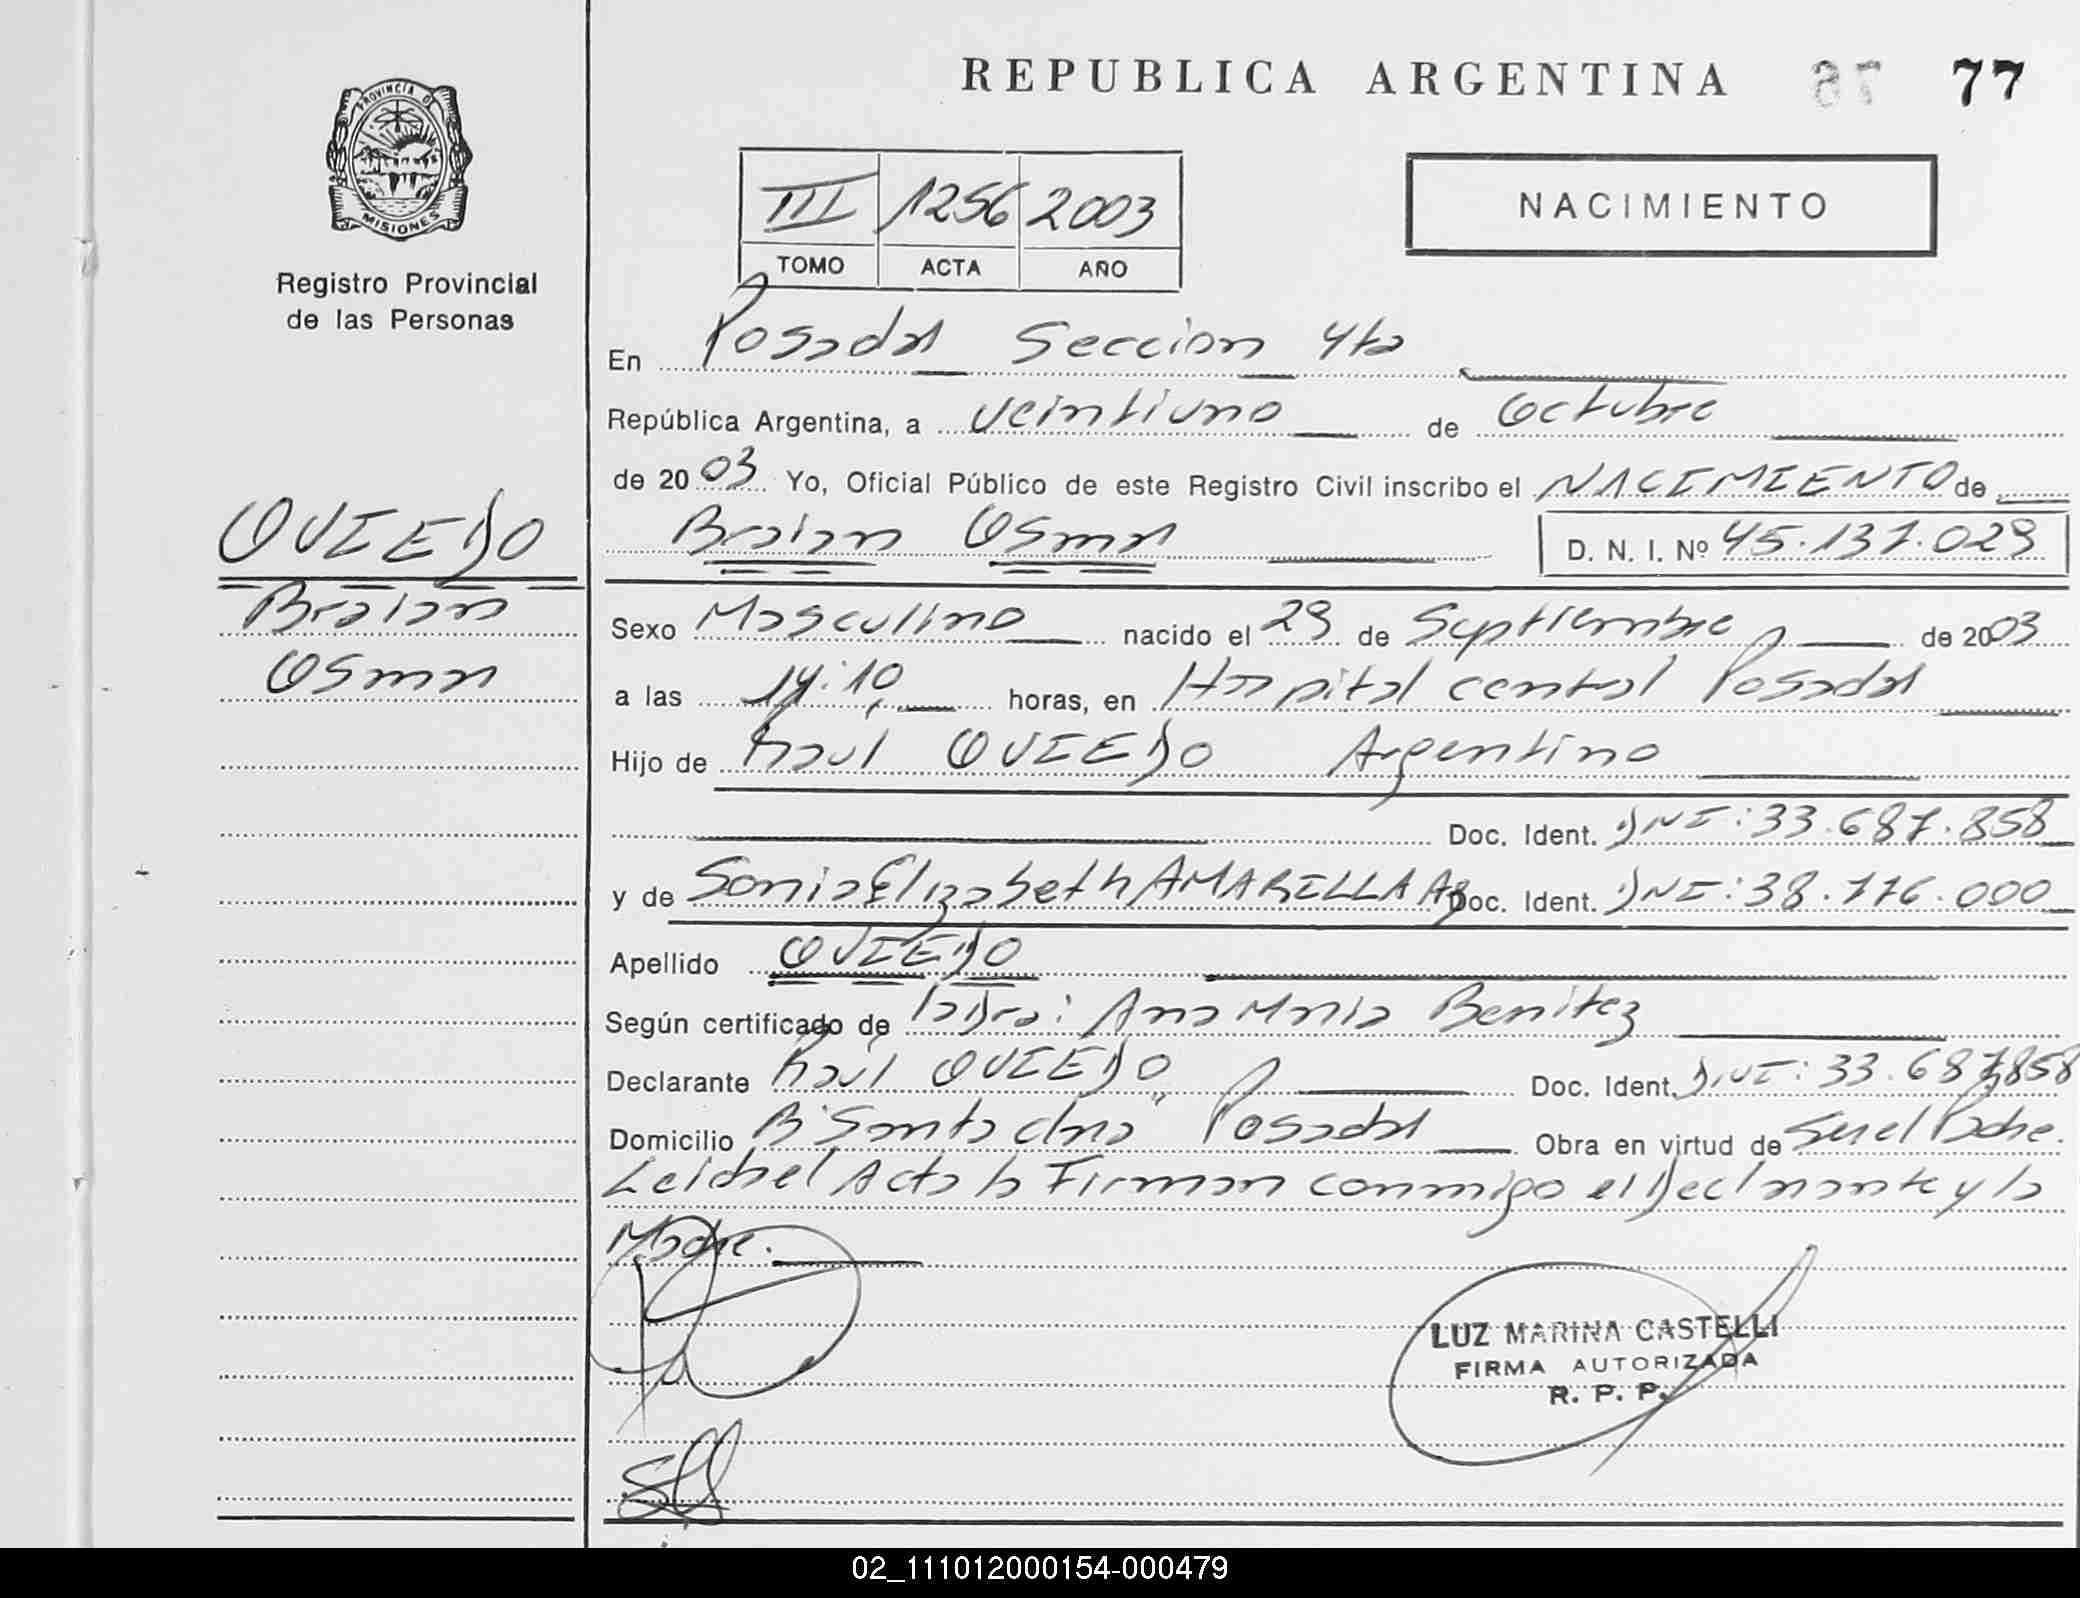 REPUBLICA ARGENTINA 77
PROVINCIA DE
MISIONES
Registro Provincial
de las Personas
III 1256 2003
TOMO ACTA AÑO
NACIMIENTO
En Posadas Seccion 4ta
República Argentina, a veintiuno de Octubre
de 2003 Yo, Oficial Público de este Registro Civil inscribo el NACIMIENTO de
Braian Osmar D. N. I. Nº 45.137.029
OVIEDO
Braian
Osmar
Sexo Masculino nacido el 29 de Septiembre de 2003
a las 14:10 horas, en Hospital central Posadas
Hijo de Raul OVIEDO Argentino
Doc. Ident. DNI: 33.687.858
y de Sonia Elizabeth AMARILLA Ag Doc. Ident. DNI: 38.776.000
Apellido OVIEDO
Según certificado de la Dra: Ana Maria Benitez
Declarante Raúl OVIEDO Doc. Ident. DNI: 33.687.858
Domicilio Bº "Santa clara" Posadas Obra en virtud de Ser el Padre.
Leida el Acta la Firman conmigo el Declarante y la
Madre.
LUZ MARINA CASTELLI
FIRMA AUTORIZADA
R. P. P.
02_111012000154-000479